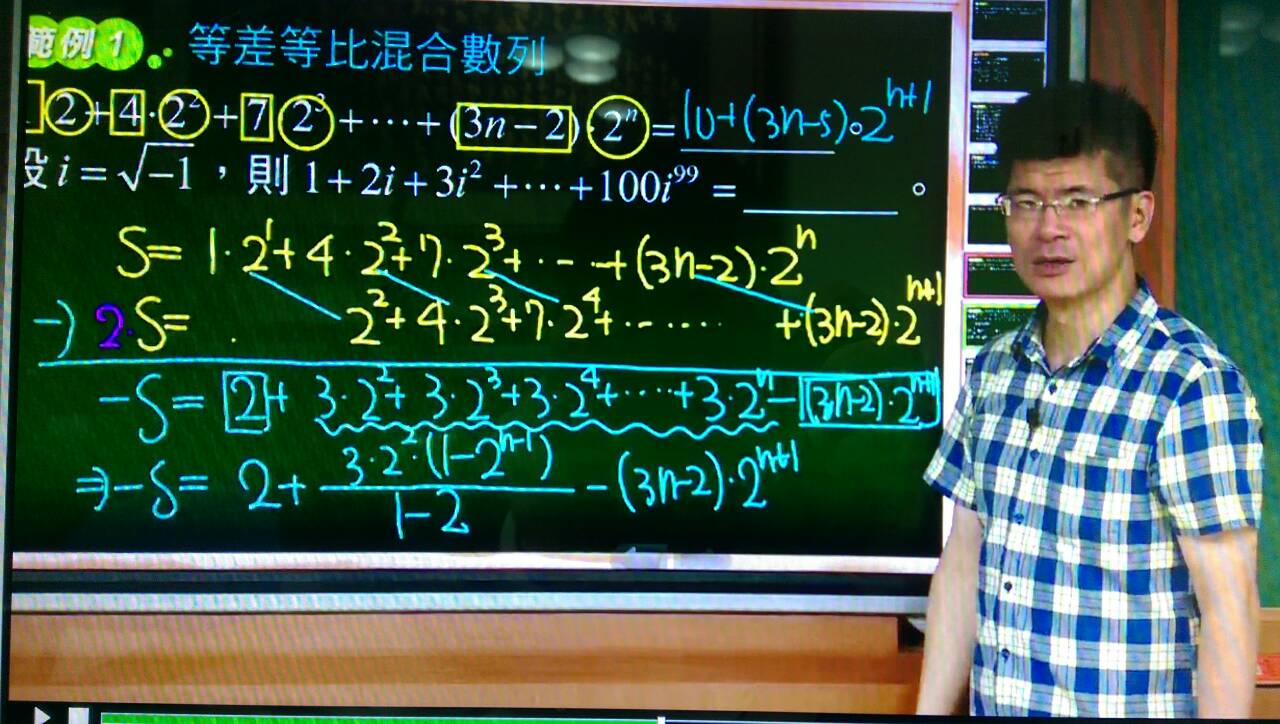 範例 1 等差等比混合數列
2+4·2²+7·2³+⋯+(3n−2)·2ⁿ=10+(3n-5)·2ⁿ⁺¹
設 i=√−1，則 1+2i+3i²+⋯+100i⁹⁹=________。
S= 1·2¹+4·2²+7·2³+⋯+(3n-2)·2ⁿ
-) 2·S= 2²+4·2³+7·2⁴+⋯⋯+(3n-2)·2ⁿ⁺¹
-S= 2+ 3·2²+3·2³+3·2⁴+⋯+3·2ⁿ-(3n-2)·2ⁿ⁺¹
⇒-S= 2+ 3·2²·(1-2ⁿ⁻¹)/1-2 -(3n-2)·2ⁿ⁺¹